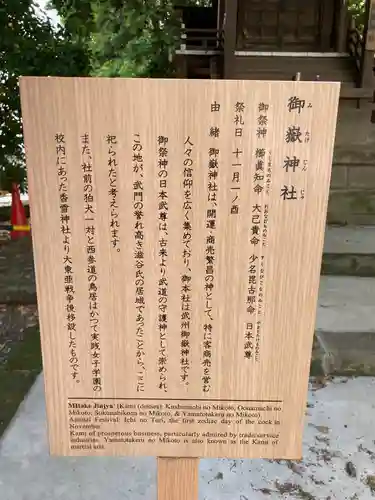 御嶽神社
みたけじんじゃ
御祭神 櫛眞知命 大己貴命 少名毘古那命 日本武尊
祭礼日 十一月一ノ酉
由緒 御嶽神社は、開運・商売繁昌の神として、特に客商売を営む
人々の信仰を広く集めており、御本社は武州御嶽神社です。
御祭神の日本武尊は、古来より武道の守護神として崇められ、
この地が、武門の誉れ高き澁谷氏の居城であったことから、ここに
祀られたと考えられます。
また、社前の狛犬一対と西参道の鳥居はかつて実践女子学園の
校内にあった香雪神社より大東亜戦争後移設したものです。
Mitake Jinjya: (Kami (deities): Kushimachi no Mikoto, Oonamuchi no
Mikoto, Sukunahikona no Mikoto, & Yamatotakeru no Mikoto)
Annual Festival: Ichi no Tori, the first zodiac day of the cock in
November.
Kami of prosperous business, particularly admired by trade/service
industries. Yamatotakeru no Mikoto is also known as the Kami of
martial arts.